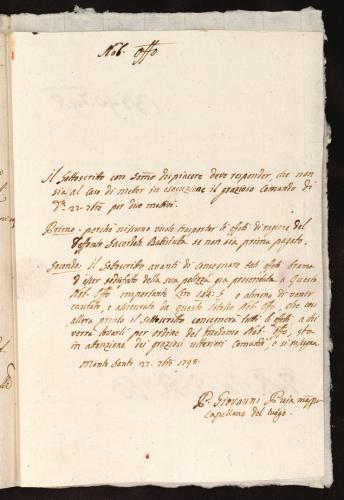 Nob. Offo
Il Sottoscritto con sommo dispiacere deve responder, che non
sia al caso di meter in esecuzione il grazioso comando di
22. 7bre per due motivi.
Primo. perchè nissuno vuole trasportar li efeti di ragione del
Deffonto Sacerdote Battistuta. se non sia prima pagato.
Secondo: il Sottoscritto avanti di consegnare tali efeti brama
d'esser sodisfatto della sua polizza già presentata a Questo
Nob. Offo importante
cautato, e alsicurato da questo Istesso Nob. Offo, che cosi
allora pronto il Sottoscritto consegnerà tutti li efeti a chi
verrà levarli per ordine del medemo Nob. Offo, sta
in atenzione dei graziosi ulteriori comandi, e si rassegna
Monte Santo. 27. 7bre 1798.
Pr. Giovanni
Capellano del luogo.